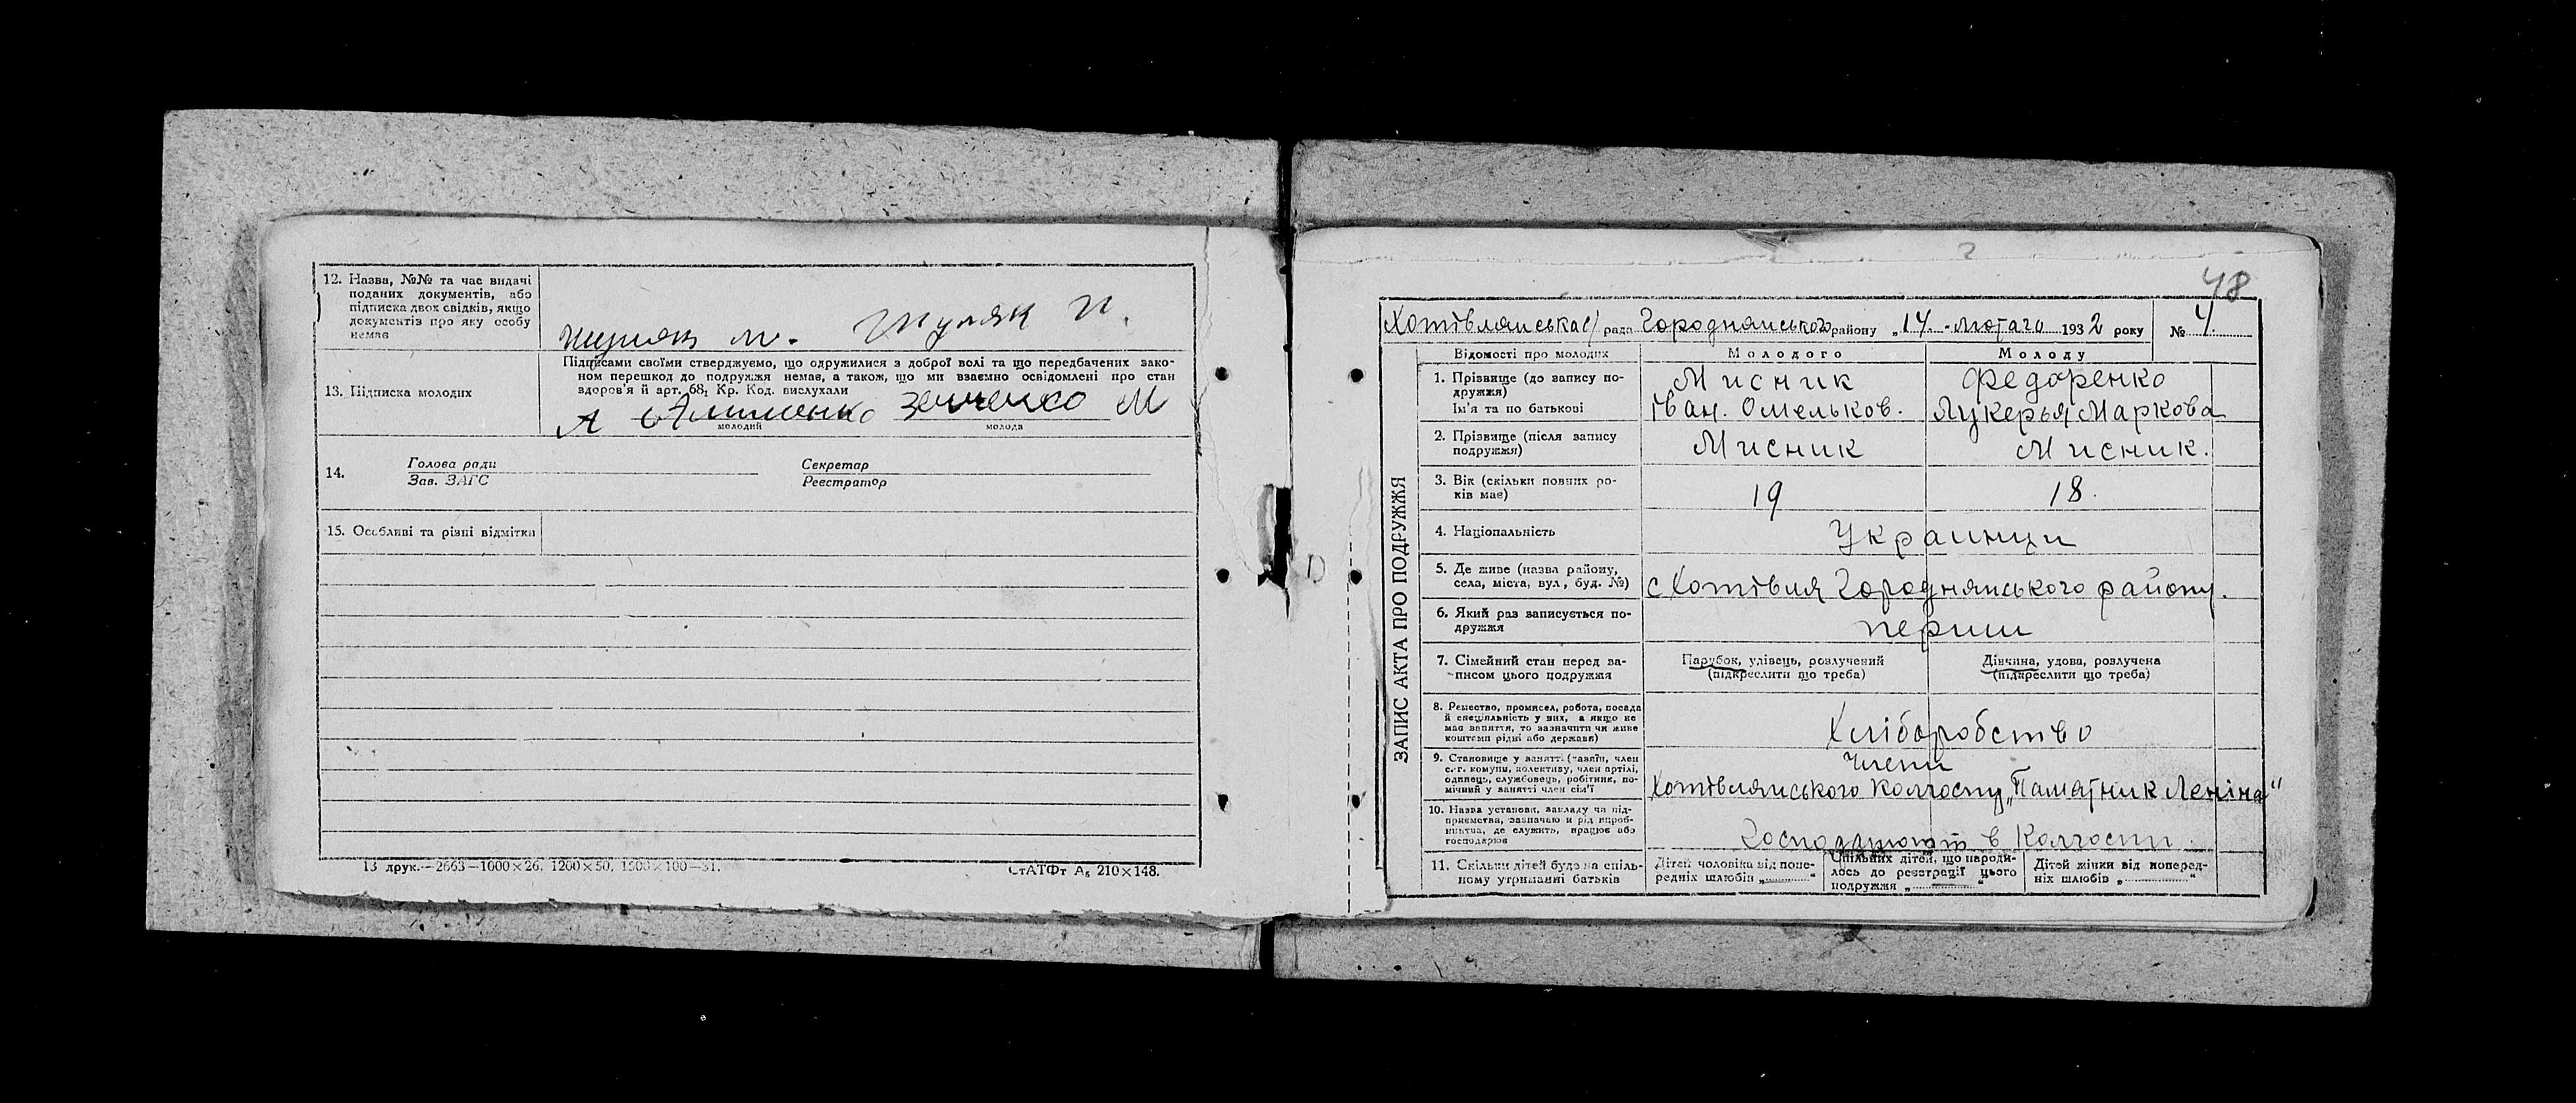 12. Назва, №№ та час видачі
поданих документів, або
підписка двох свідків, якщо
документів про яку особу
немає
Шуляк М. Шуляк И.
13. Підписка молодих
Підписами своїми стверджуємо, що одружилися з доброї волі та що передбачених зако-
ном перешкод до подружжя немає, а також, що ми взаємно освідомлені про стан
здоров'я й арт. 68, Кр. Код. вислухали
М
молодий
молода
14.
Голова ради
Зав. ЗАГС
Секретар
Реєстратор
15. Особливі та різні відмітки
13 друк.—2663—1000×26, 1200×50, 1500×100—31.
СтАТФт А₅ 210×148.
48
Хотівлянська с/ рада Городнянського району „14„ лютого 1932 року № 4.
ЗАПИС АКТА ПРО ПОДРУЖЖЯ
Відомості про молодих
Молодого
Молоду
1. Прізвище (до запису по-
дружжя)
Ім'я та по батькові
Мисник
Іван. Омельков.
Федоренко
Лукерья Маркова
2. Прізвище (після запису
подружжя)
Мисник
Мисник.
3. Вік (скільки повних ро-
ків має)
19
18.
4. Національність
Украинци
5. Де живе (назва району,
села, міста, вул., буд. №)
с Хотівля Городнянського району.
6. Який раз записується по-
дружжя
перший
7. Сімейний стан перед за-
писом цього подружжя
Парубок, удівець, розлучений
(підкреслити що треба)
Дівчина, удова, розлучена
(підкреслити що треба)
8. Ремество, промисел, робота, посада
й спеціяльність у них, а якщо не
має заняття, то зазначити чи живе
коштами рідні або держави)
Хліборобство
9. Становище у занятті (хазяїн, член
с.-г. комуни, колективу, член артілі,
одинець, службовець, робітник, по-
мічний у занятті член сім'ї
Члени
Хотівлянського колгоспу „Памятник Леніна"
10. Назва установи, закладу чи під-
приємства, зазначаючи рід вироб-
ництва, де служить, працює або
господарює
Господарюють в Колгоспи
11. Скільки дітей буде на спіль-
ному утриманні батьків
Дітей чоловіка від попе-
редніх шлюбів „............“
Спільних дітей, що народи-
лось до реєстрації цього
подружжя „............“
Дітей жінки від поперед-
ніх шлюбів „............“